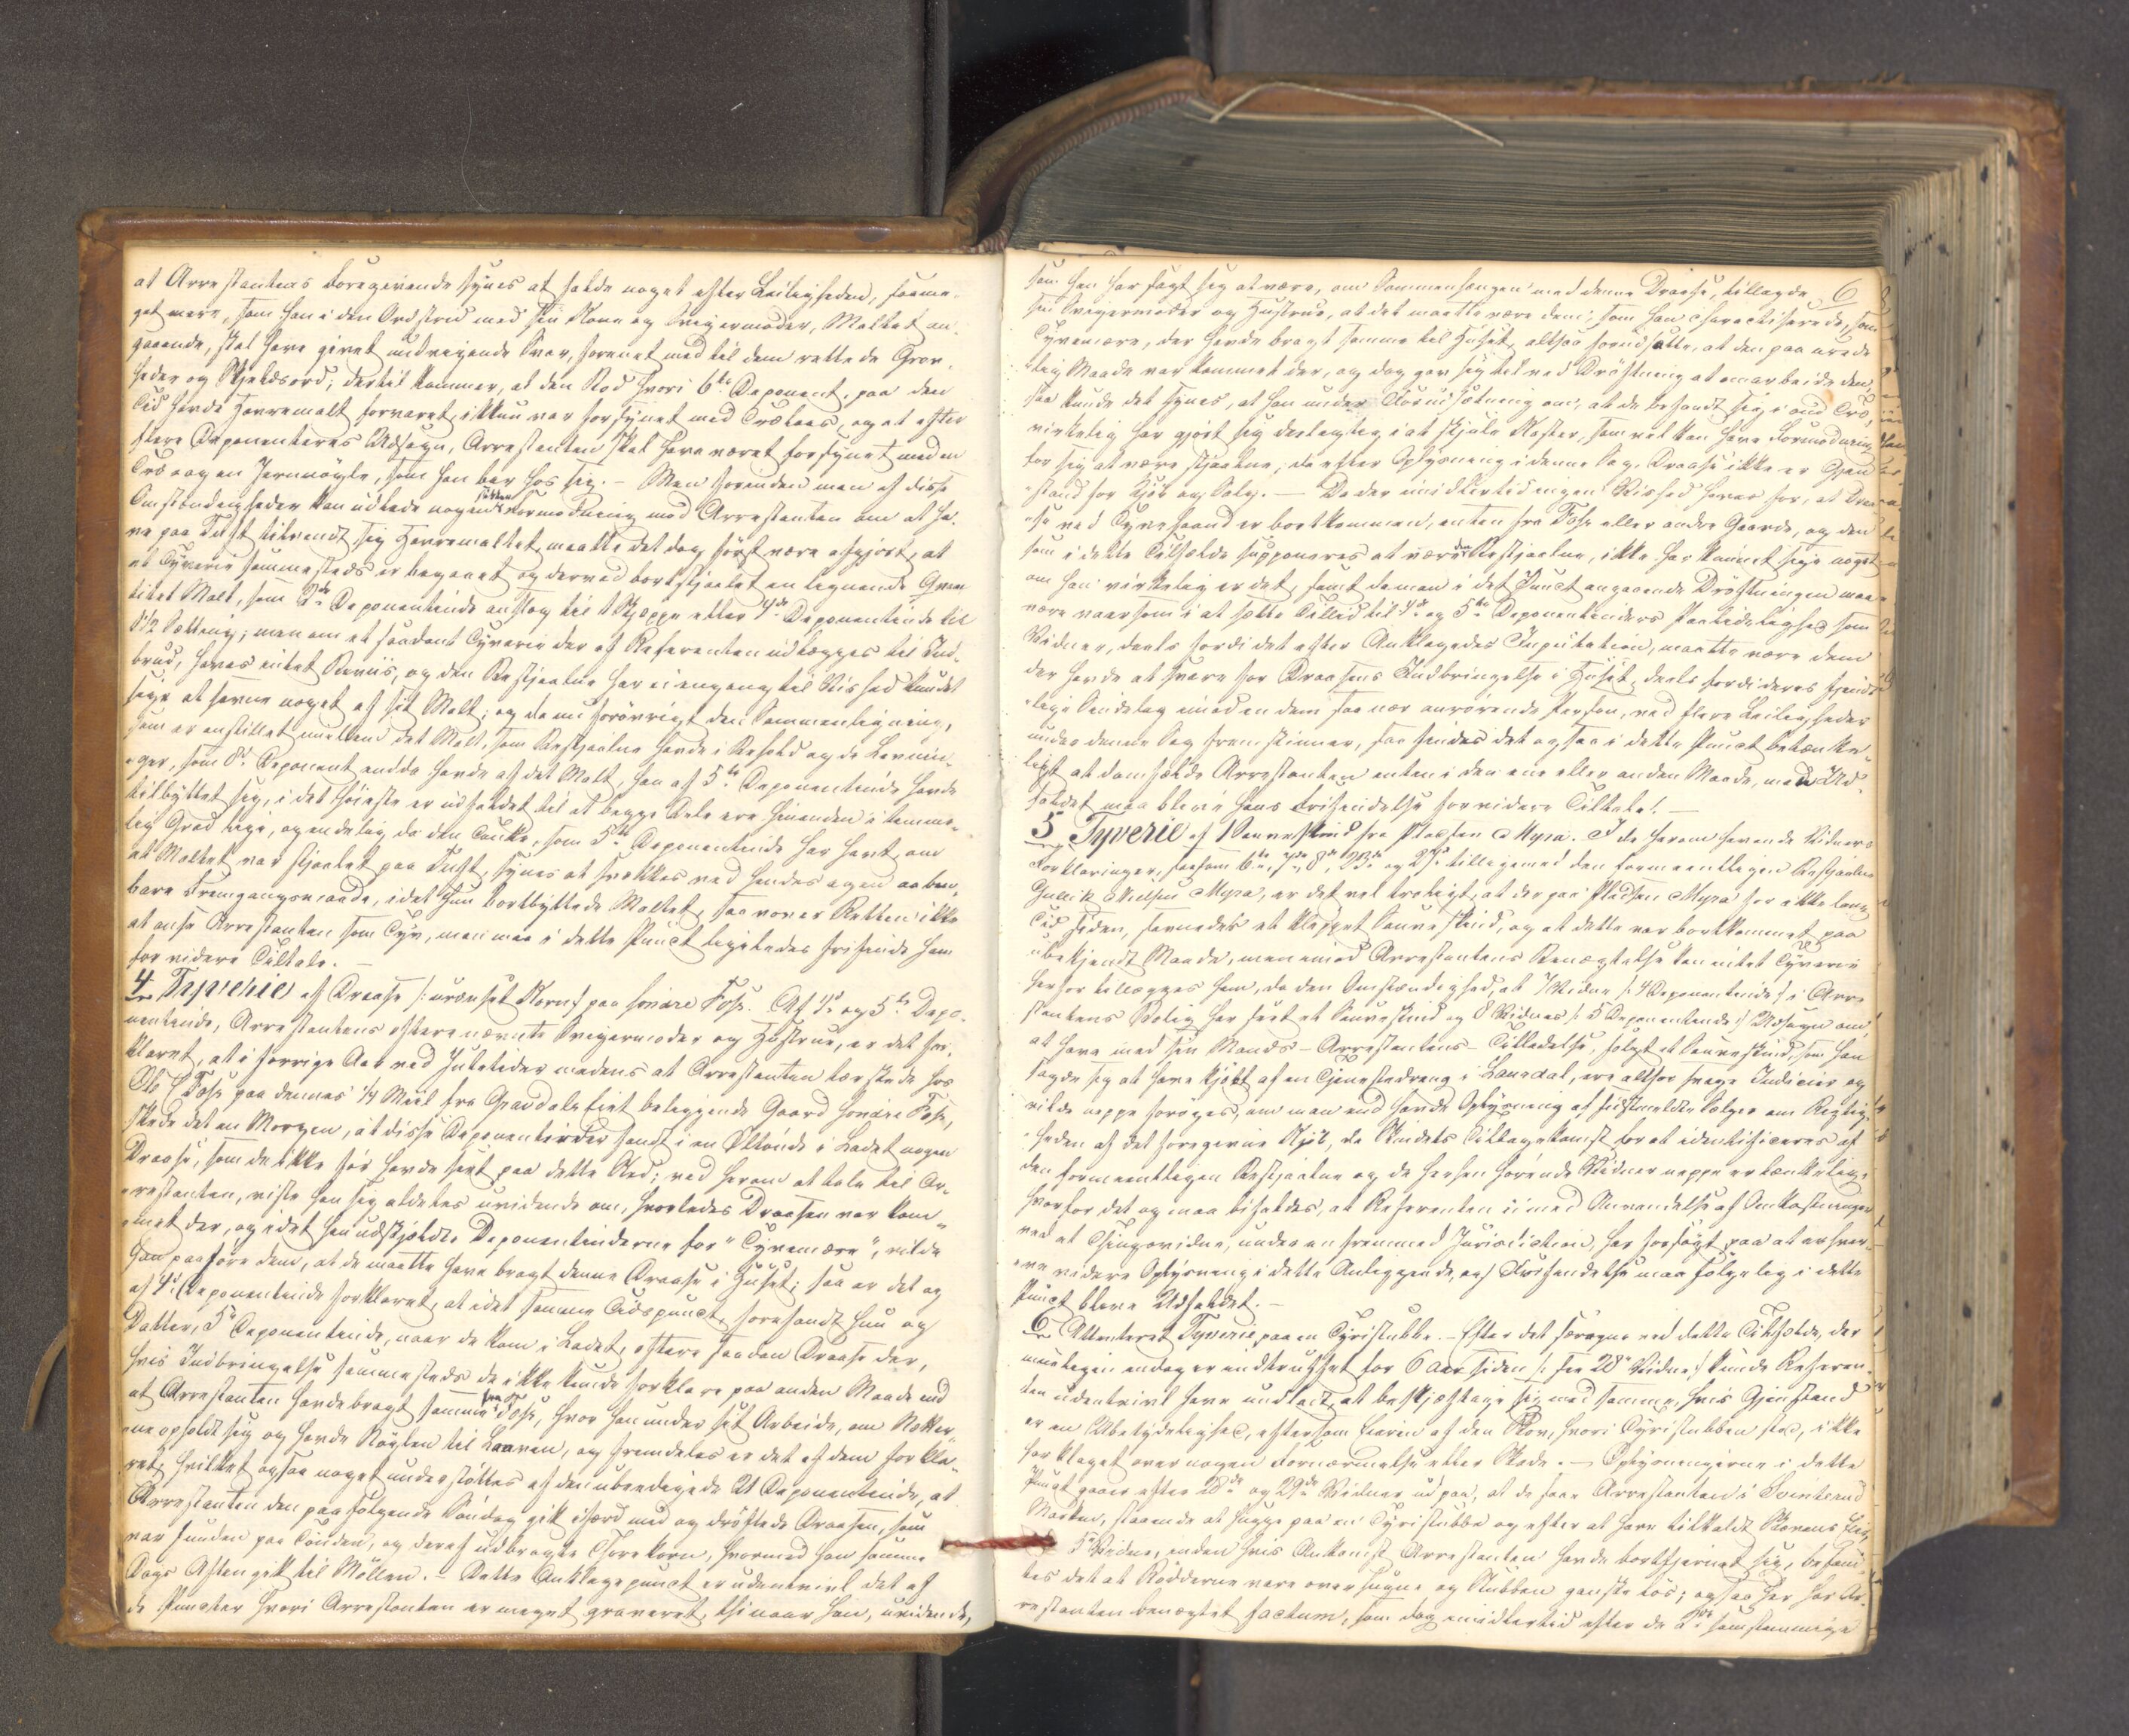 at Arrestantens Foregivende synes at helde noget efter Leiligheden, saame-
get mere, som han i den Ordstrid med sin Kone og Svigermoder, Maltet an-
gaaende, skal have givet undvigende Svar, forenet med til dem rettede Grov-
heder og Skjeldsord; dertil kommer, at den Bod hvori 6te Deponent, paa den
Tid havde Havremalt forvaret, ikkun var forsynet med Trælaas, og at efter
flere Deponenteres Udsagn, Arrestanten skal have været forsynet med en
Træ og en Jernnøgle, som han bar hos sig. – Men hvorvel man af disse
Omstændigheder kan udlede nogen Formodning mod Arrestanten om at ha-
ve paa Fust tilvendt sig Havremaltet, maatte det dog først være afgjort, at
et Tyverie sammesteds er begaaet og derved bortstjaalet en lignende Qvan
titet Malt, som 2de Deponentinde anslog til 1 Skjeppe eller 4de Deponentinde til
1½ Sætting; men om et saadant Tyverie der af Referenten udlægges til Ind-
brud, haves intet Beviis, og den Bestjaalne har ei engang til Vished kundet
sige at savne noget af sit Malt; og da nu forøvrigt den Sammenligning,
som er anstillet imellem det Malt, som Bestjaalne havde i Behold og de Levnin-
ger, som 8de Deponent endda havde af det Malt, han af 5te Deponentinde havde
tilbyttet sig, i det høieste er udfaldet til at begge Dele ere hinanden i temme-
lig Grad lige, og endelig da den Tanke, som 5te Deponentinde har havt, om
at Maltet var stjaalet paa Fust, synes at svækkes ved hendes egen aaben-
bare Fremgangsmaade, idet hun bortbyttede Maltet, saa vover Retten ikke
at ansee Arrestanten som Tyv, men maa i dette Punct ligeledes frifinde ham
for videre Tiltale. –
4 Tyverie af Draase /: urenset Korn :/ paa søndre Foss. Af 4de og 5te Depo-
nentinde, Arrestantens oftere nævnte Svigermoder og Hustrue, er det for-
klaret, at i forrige Aar ved Juletider medens at Arrestanten tærskede hos
Ole Foss paa dennes ¼ Miil fra Gravdalseiet beliggende Gaard søndre Foss,
skede det en Morgen, at disse Deponentinder fandt i en Øltønde i Ladet nogen
Draase, som de ikke før havde seet paa dette Sted; ved herom at tale til Ar-
restanten, viste han sig aldeles uvidende om, hvorledes Draasen var kom-
met der, og idet han udskjeldte Deponentinderne for "Tyvemære", vilde
han paaføre dem, at de maatte have bragt denne Draase i Huset; saa er det og
af 4de Deponentinde forklaret, at idet samme Tidspunct, forefandt hun og
Datter, 5te Deponentinde, naar de kom i Ladet, oftere saadan Draase der,
hvis Indbringelse sammesteds de ikke kunde forklare paa anden Maade end
at Arrestanten havde bragt samme fra Foss, hvor han under sit Arbeide, om Nætter-
ne opholdt sig og havde Nøglen til Laaven, og fremdeles er det af dem forkla-
ret, hvilket ogsaa noget understøttes af den ubeedigede 21 Deponentinde, at
Arrestanten den paafølgende Søndag gik ifærd med og drøftede Draasen, som
var funden paa Tønden, og deraf udbragte Thorekorn, hvormed han samme
Dags Aften gik til Møllen. – Dette Anklagepunct er udentvivl det af
de Puncter hvori Arrestanten er meget graveret, thi naar han, uvidende,
6
som han har sagt sig at være, om Sammenhængen med denne Draase, tillagde
sin Svigermoder og Hustrue, at det maatte være dem; som han charactiserede, som
Tyvemære, der havde bragt samme til Huset, altsaa forudsatte, at den paa urede-
lig Maade var kommet der, og dog gav sig til ved Drøftning at omarbeide den,
saa kunde det synes, at han under Forudsætning om, at de befandt sig i ond Tro,
virkelig har gjort sig deelagtig i at skjule Koster, som vel kan have Formodning
for sig at være stjaalne, da efter Oplysning i denne Sag, Draase ikke er Gjen
stand for Kjøb og Salg. – Da der imidlertid ingen Vished haves for, at Draa-
se ved Tyvehaand er bortkommen, enten fra Foss eller andre Gaarde, og den
som i dette Tilfælde supponeres at være den Bestjaalne, ikke har kunnet sige noget
om han virkelig er det, samt da man i det Punct angaaende Drøftningen maa
være vaersom i at sætte Tillid til 4de og 5te Deponentinders Paalidelighed som
Vidner, deels fordi det efter Anklagedes Imputation, maatte være dem
der havde at svare for Draasens Indbringelse i Huset, deels fordi deres fjendt-
lige Sindelag imod en dem saa nær anrørende Person, ved flere Leiligheder
under denne Sag fremskinner, saa findes det ogsaa i dette Punct betænke-
ligt at domfælde Arrestanten enten i den ene eller anden Maade, mede Ud-
faldet maa blive hans Frifindelse for videre Tiltale! –
5 Tyverie af 1 Saueskind fra Pladsen Myra. I de herom havende Vidners
Forklaringer, saasom 6te, 7de, 8de, 23de og 25de tilligemed den formeentligen Bestjaalne
Gullik Nielsen Myra, er det vel troligt, at der paa Pladsen Myra for ikke lang
Tid siden, savnedes et klippet Saueskind, og at dette var bortkommet paa
ubekjendt Maade, men imod Arrestantens Benægtelse kan intet Tyverie
herfor tillægges ham, da den Omstændighed, at 7 Vidne /: 4 Deponentinde :/ i Arre-
stantens Bolig har seet et Saueskind og 8 Vidnes /: 5 Deponentinde :/ Udsagn om,
at have med sin Mands – Arrestantens – Tilladelse, solgt et Saueskind, som han
sagde sig at have kjøbt af en Tjenestedreng i Laurdal, ere altfor svage Indicier og
vilde neppe forøges, om man end havde Oplysning af sidstmeldte Sælger om Rigtig-
heden af det foregivne Kjøb, da Skindets Tilbagekomst for at identificeres af
den formeentligen Bestjaalne og de herhen hørende Vidner neppe er tænkelig:
hvorfor det og maa bifaldes, at Referenten ei med Anvendelse af Omkostninger
ved et Thingsvidne, under en fremmed Jurisdiction, har forsøgt paa at erhver-
ve videre Oplysning i dette Anliggende, og Frifindelse maa følgelig i dette
Punct bleve Udfaldet. –
6 Attenteret Tyverie paa en Tyristubbe. – Efter det særegne ved dette Tilfælde, der
muligen endog er indtruffet for 6 aar siden /: see 28de Vidne :/ kunde Referen-
ten udentvivl have undladt at beskjæftige sig med samme, hvis Gjenstand
er en Ubetydelighed, eftersom Eieren af den Skov, hvori Tyristubben stod, ikke
har klaget over nogen Fornærmelse eller Skade. – Oplysningerne i dette
Punct gaaer efter 28de og 29de Vidner ud paa, at de saae Arrestanten i
Marken, staaende at hugge paa en Tyristubbe og efter at have tilkaldt Skovens Eier,
5te Vidne, inden hvis Ankomst Arrestanten havde bortfjernet sig, befand-
tes det at Rødderne vare overhugne og Stubben ganske løs; ogsaa her har Ar-
restanten benægtet factum, som dog imidlertid efter de 2de samstemmige